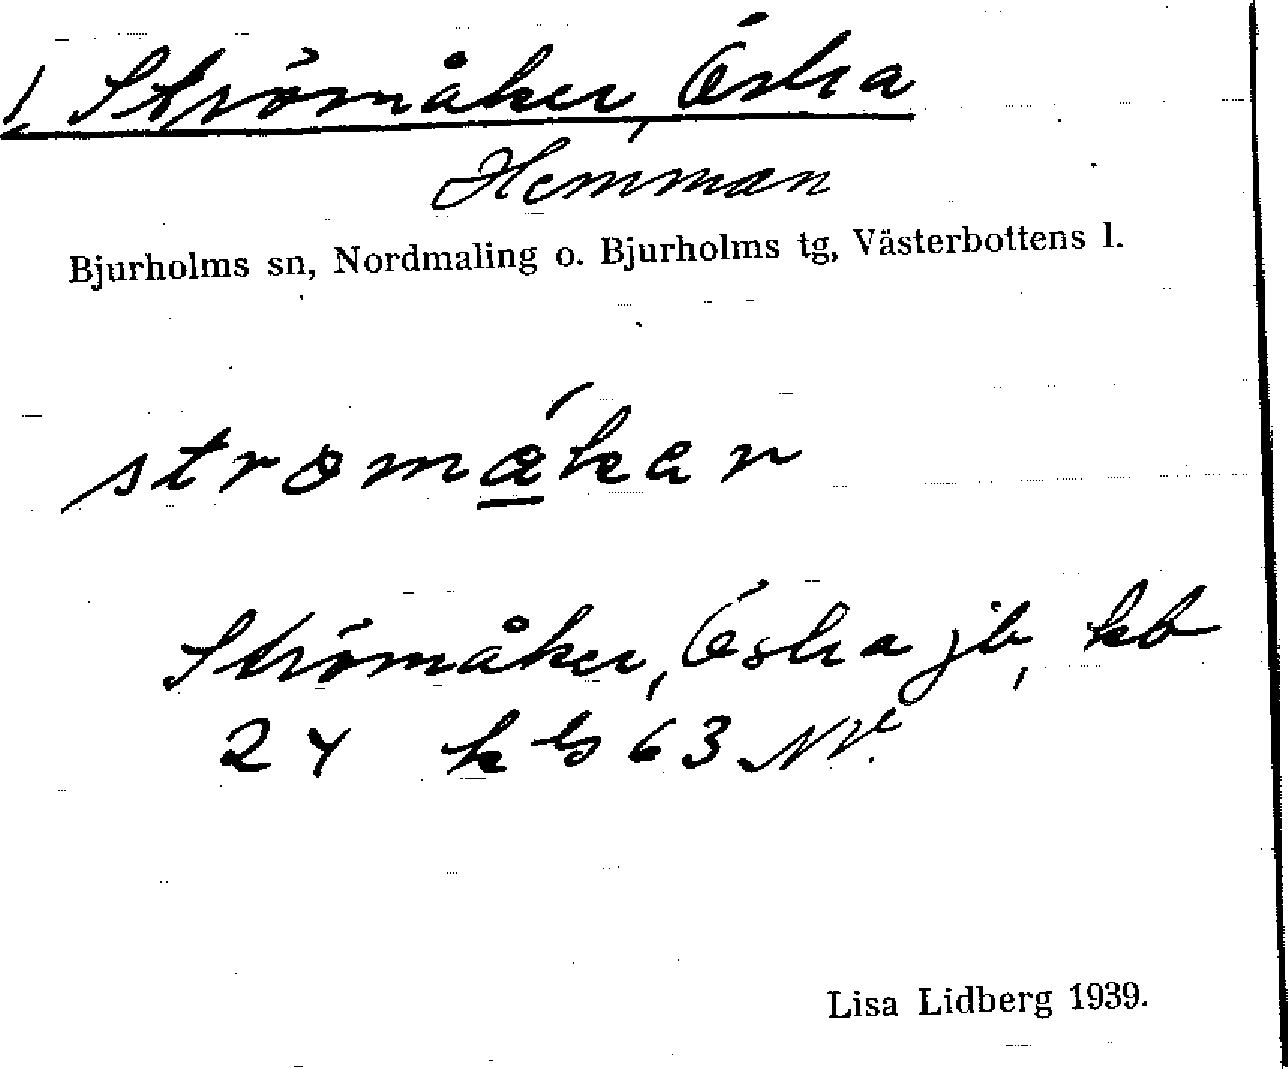 1, Strömåker, Östra
Hemman
Bjurholms sn, Nordmaling o. Bjurholms tg, Västerbottens l.
strømákar
Strömåker, Östra jb, kb
24 kb 63 NV.
Lisa Lidberg 1939.